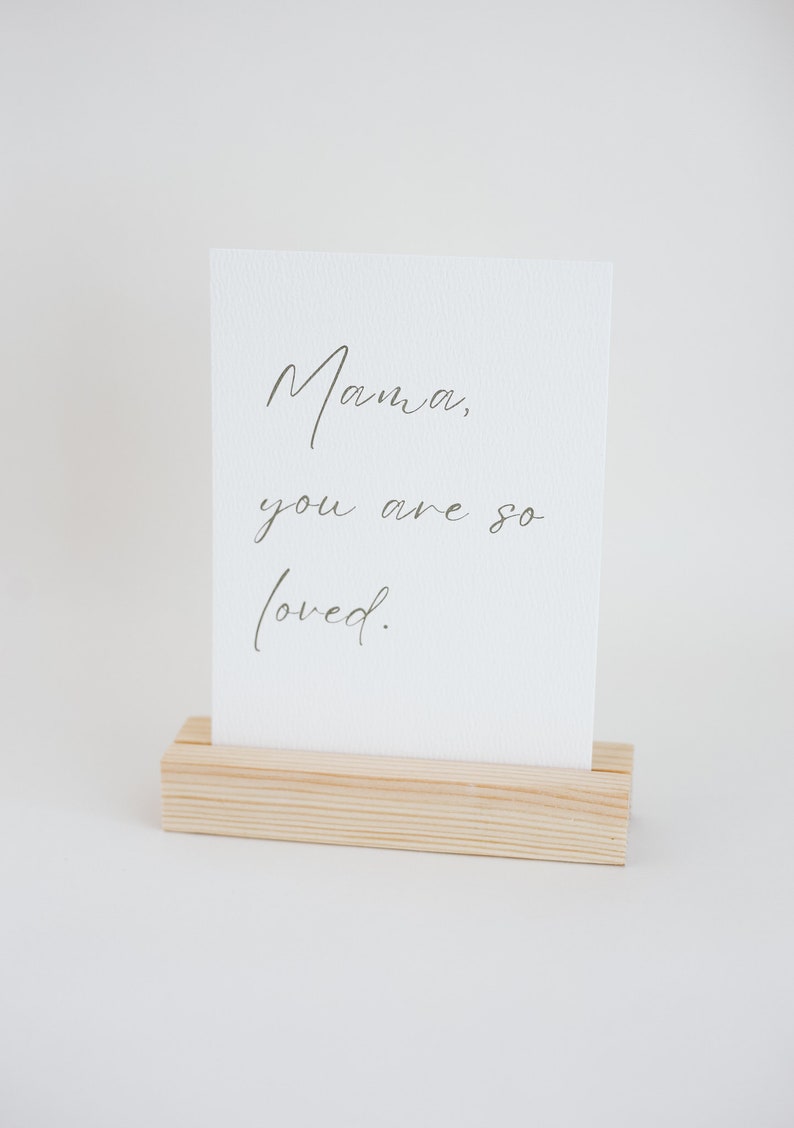 Mama,
you are so
loved.